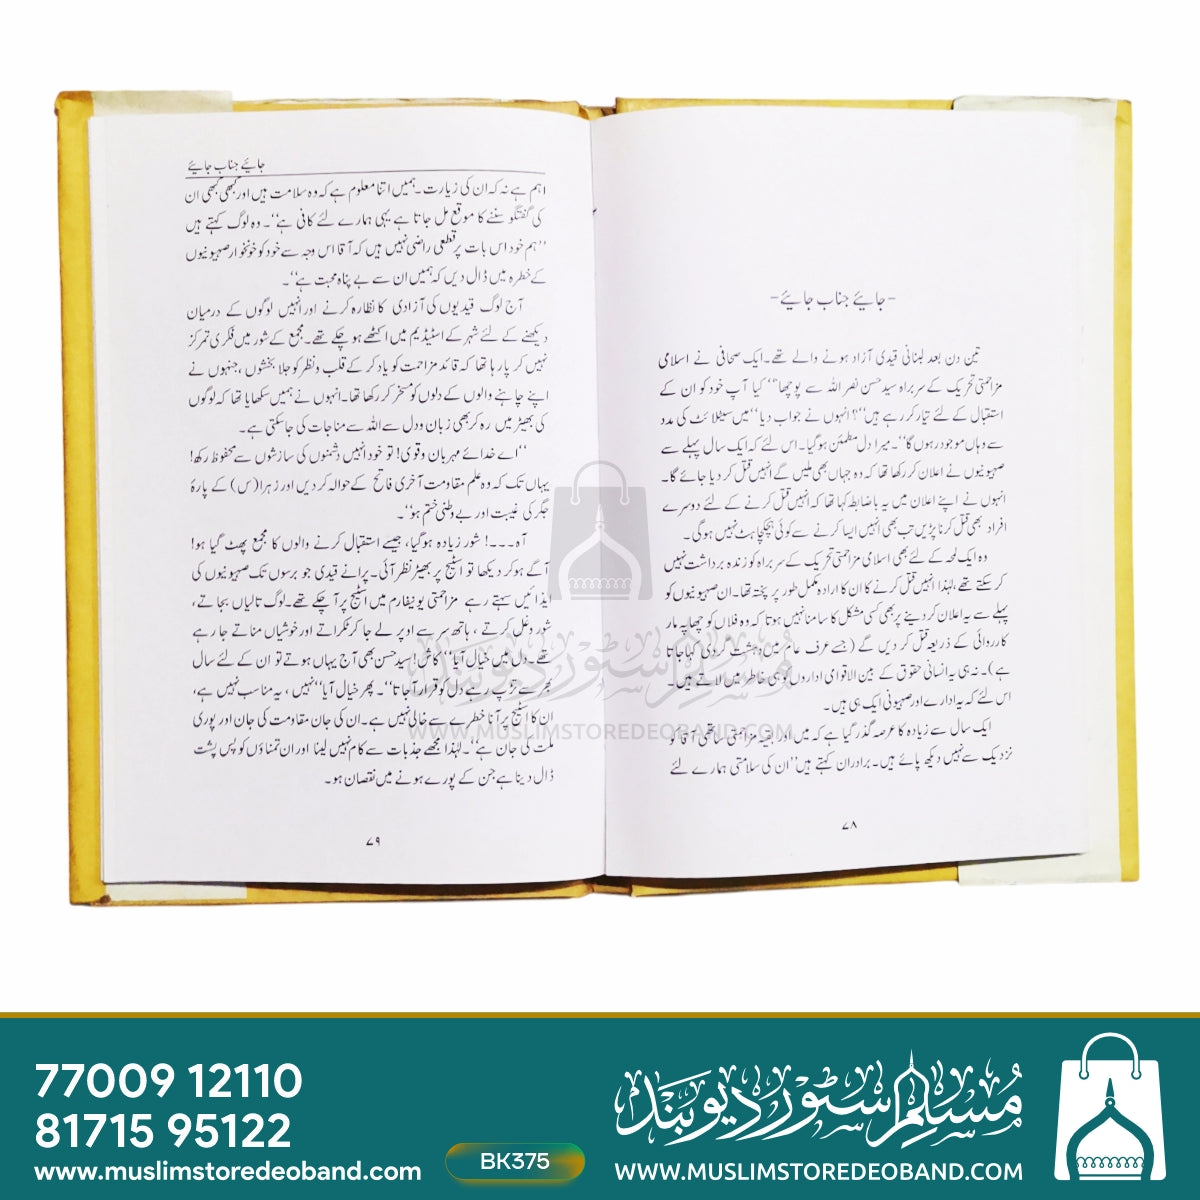 -جائیے جناب جائیے-
تین دن بعد لبنانی قیدی آزاد ہونے والے تھے۔ ایک صحافی نے اسلامی
مزاحمتی تحریک کے سربراہ سید حسن نصر اللہ سے پوچھا ''کیا آپ خود کو ان کے
استقبال کے لئے تیار کر رہے ہیں''؟ انہوں نے جواب دیا ''میں سیٹلائٹ کی مدد
سے وہاں موجود رہوں گا''۔ میرا دل مطمئن ہو گیا۔ اس لئے کہ ایک سال پہلے سے
صہیونیوں نے اعلان کر رکھا تھا کہ وہ جہاں بھی ملیں گے انہیں قتل کر دیا جائے گا۔
انہوں نے اپنے اعلان میں یہ باضابطہ کہا تھا کہ انہیں قتل کرنے کے لئے دوسرے
افراد بھی قتل کرنا پڑیں تب بھی انہیں ایسا کرنے سے کوئی ہچکچاہٹ نہیں ہوگی۔
وہ ایک لمحہ کے لئے بھی اسلامی مزاحمتی تحریک کے سربراہ کو زندہ برداشت نہیں
کر سکتے تھے، لہٰذا انہیں قتل کرنے کا ان کا ارادہ مکمل طور پر پختہ تھا۔ ان صہیونیوں کو
پہلے سے یہ اعلان کر دینے پر بھی کسی مشکل کا سامنا نہیں ہوتا کہ وہ فلاں کو چھاپہ مار
کارروائی کے ذریعہ قتل کر دیں گے (جسے عرف عام میں دہشت گردی کہا جاتا
ہے)۔ نہ ہی یہ انسانی حقوق کے بین الاقوامی اداروں کو ہی خاطر میں لاتے ہیں۔
اس لئے کہ یہ ادارے اور صہیونی ایک ہی ہیں۔
ایک سال سے زیادہ کا عرصہ گذر گیا ہے کہ میں اور بقیہ مزاحمتی ساتھی آقا کو
نزدیک سے نہیں دیکھ پائے ہیں۔ برادران کہتے ہیں ''ان کی سلامتی ہمارے لئے
۷۸
جائیے جناب جائیے
اہم ہے نہ کہ ان کی زیارت۔ ہمیں اتنا معلوم ہے کہ وہ سلامت ہیں اور کبھی کبھی ان
کی گفتگو سننے کا موقع مل جاتا ہے یہی ہمارے لئے کافی ہے''۔ وہ لوگ کہتے ہیں
''ہم خود اس بات پر قطعی راضی نہیں ہیں کہ آقا اس وجہ سے خود کو خونخوار صہیونیوں
کے خطرہ میں ڈال دیں کہ ہمیں ان سے بے پناہ محبت ہے''۔
آج لوگ قیدیوں کی آزادی کا نظارہ کرنے اور انہیں لوگوں کے درمیان
دیکھنے کے لئے شہر کے اسٹیڈیم میں اکٹھے ہو چکے تھے۔ مجمع کے شور میں فکری تمرکز
نہیں کر پا رہا تھا کہ قائد مزاحمت کو یاد کر کے قلب و نظر کو جلا بخشوں، جنہوں نے
اپنے چاہنے والوں کے دلوں کو مسخر کر رکھا تھا۔ انہوں نے ہمیں سکھایا تھا کہ لوگوں
کی بھیڑ میں رہ کر بھی زبان و دل سے اللہ سے مناجات کی جا سکتی ہے۔
''اے خدائے مہربان و قوی! تو خود انہیں دشمنوں کی سازشوں سے محفوظ رکھ!
یہاں تک کہ وہ علم مقاومت آخری فاتح کے حوالہ کر دیں اور زہرا (س) کے پارۂ
جگر کی غیبت اور بے وطنی ختم ہو''۔
آہ۔۔۔! شور زیادہ ہو گیا، جیسے استقبال کرنے والوں کا مجمع پھٹ گیا ہو!
آگے ہو کر دیکھا تو اسٹیج پر بھیڑ نظر آئی۔ پرانے قیدی جو برسوں تک صہیونیوں کی
ایذائیں سہتے رہے مزاحمتی یونیفارم میں اسٹیج پر آ چکے تھے۔ لوگ تالیاں بجاتے،
شور و غل کرتے، ہاتھ سر سے اوپر لے جا کر ٹکراتے اور خوشیاں مناتے جا رہے
تھے۔ دل میں خیال آیا ''کاش! سید حسن بھی آج یہاں ہوتے تو ان کے لئے سال
بھر سے تڑپ رہے دل کو قرار آ جاتا''۔ پھر خیال آیا ''نہیں، یہ مناسب نہیں ہے،
ان کا اسٹیج پر آنا خطرے سے خالی نہیں ہے۔ ان کی جان مقاومت کی جان اور پوری
ملت کی جان ہے''۔ لہٰذا مجھے جذبات سے کام نہیں لینا اور ان تمناؤں کو پس پشت
ڈال دینا ہے جن کے پورے ہونے میں نقصان ہو۔
۷۹
مسلم سٹور دیوبند
WWW.MUSLIMSTOREDEOBAND.COM
77009 12110
81715 95122
www.muslimstoredeoband.com
BK375
مسلم سٹور دیوبند
WWW.MUSLIMSTOREDEOBAND.COM